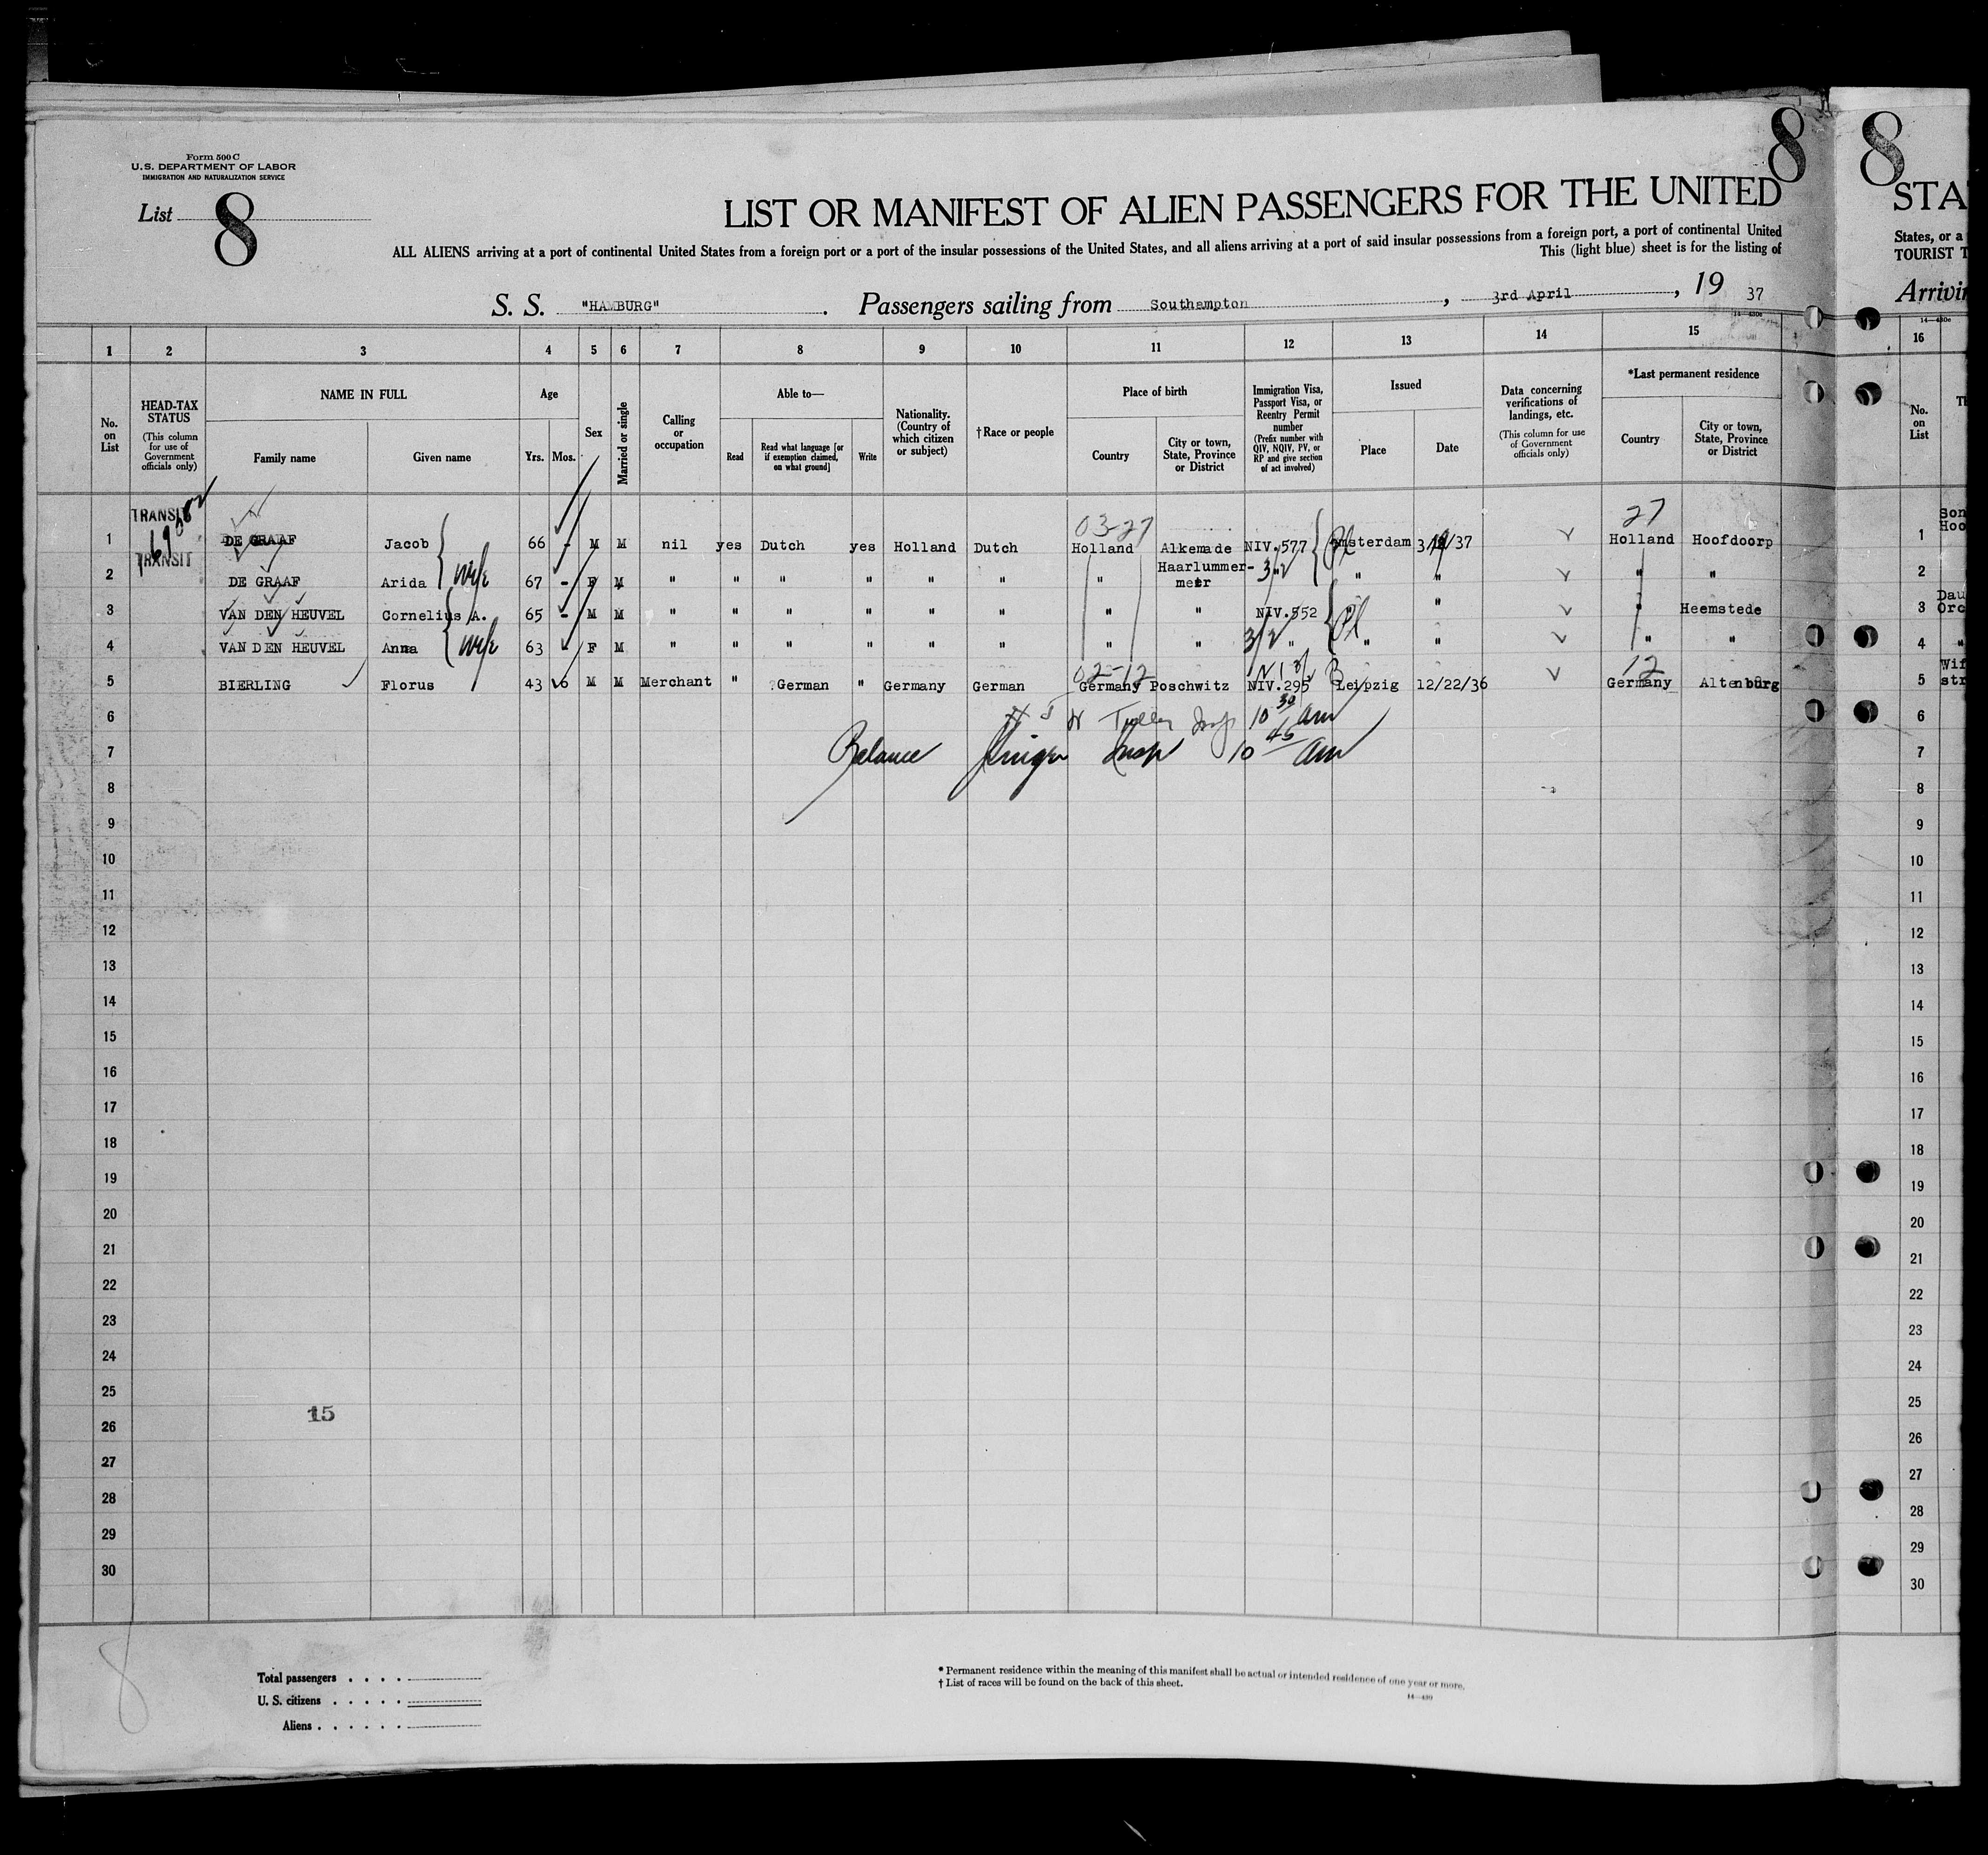 8
8
Form 500 C
U.S. DEPARTMENT OF LABOR
IMMIGRATION AND NATURALIZATION SERVICE
List 8
LIST OR MANIFEST OF ALIEN PASSENGERS FOR THE UNITED
STA
ALL ALIENS arriving at a port of continental United States from a foreign port or a port of the insular possessions of the United States, and all aliens arriving at a port of said insular possessions from a foreign port, a port of continental United
States, or a
This (light blue) sheet is for the listing of
TOURIST T
S. S. "HAMBURG". Passengers sailing from Southampton, 3rd April, 19 37
Arrivin
14—430c
14—430c
1 2 3 4 5 6 7 8 9 10 11 12 13 14 15
16
No. on List
HEAD-TAX STATUS
(This column for use of Government officials only)
NAME IN FULL
Family name
Given name
Age
Yrs.
Mos.
Sex
Married or single
Calling or occupation
Able to—
Read
Read what language [or if exemption claimed, on what ground]
Write
Nationality. (Country of which citizen or subject)
†Race or people
Place of birth
Country
City or town, State, Province or District
Immigration Visa, Passport Visa, or Reentry Permit number
(Prefix number with QIV, NQIV, PV, or RP and give section of act involved)
Issued
Place
Date
Data concerning verifications of landings, etc.
(This column for use of Government officials only)
*Last permanent residence
Country
City or town, State, Province or District
No. on List
TRANSIT
03-27
27
1 DE GRAAF Jacob 66 - M M nil yes Dutch yes Holland Dutch Holland Alkemade NIV.577 Amsterdam 37 Holland Hoofdoorp
1 Son
Hoo
TRANSIT
2 DE GRAAF Arida wife 67 - F M " " " " " " " Haarlummer-meer 3/2 " " " " "
2
3 VAN DEN HEUVEL Cornelius A. 65 - M M " " " " " " " " NIV.552 " " " Heemstede
3 Dau
Orc
4 VAN DEN HEUVEL Anna wife 63 - F M " " " " " " " " 3/2 " " " " "
4 "
02-12
12
5 BIERLING Florus 43 6 M M Merchant " German " Germany German Germany Poschwitz NIV.295 Leipzig 12/22/36 Germany Altenburg
5 Wif
str
6 10 30 am
6
7 Balance Insp 10 45 am
7
8
8
9
9
10
10
11
11
12
12
13
13
14
14
15
15
16
16
17
17
18
18
19
19
20
20
21
21
22
22
23
23
24
24
25
25
15
26
26
27
27
28
28
29
29
30
30
8
Total passengers . . . .
U. S. citizens . . . . .
Aliens . . . . . .
* Permanent residence within the meaning of this manifest shall be actual or intended residence of one year or more.
† List of races will be found on the back of this sheet.
14—430